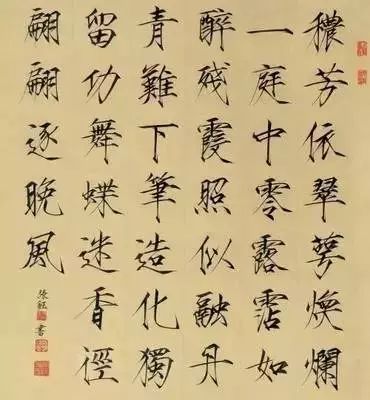 穠芳依翠萼煥爛
一庭中零露霑如
醉殘霞照似融丹
青難下筆造化獨
留功舞蝶迷香徑
翩翩逐晚風
張書